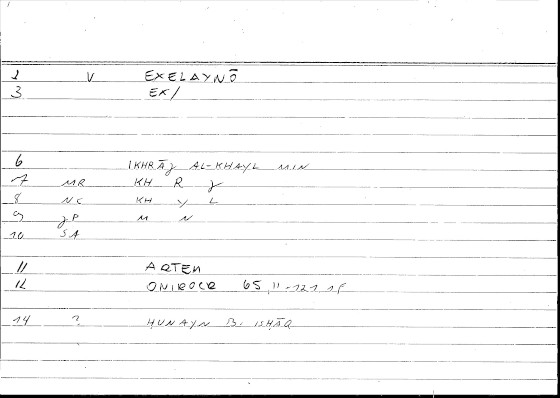 1 V EXELAYNŌ
3 EX/
6 IKHRĀJ AL-KHAYL MIN
7 MR KH R J
8 NC KH Y L
9 JP M N
10 SA
11 ARTEM
12 ONIROCR 65,11-121 15
14 ? HUNAYN B. ISHĀQ